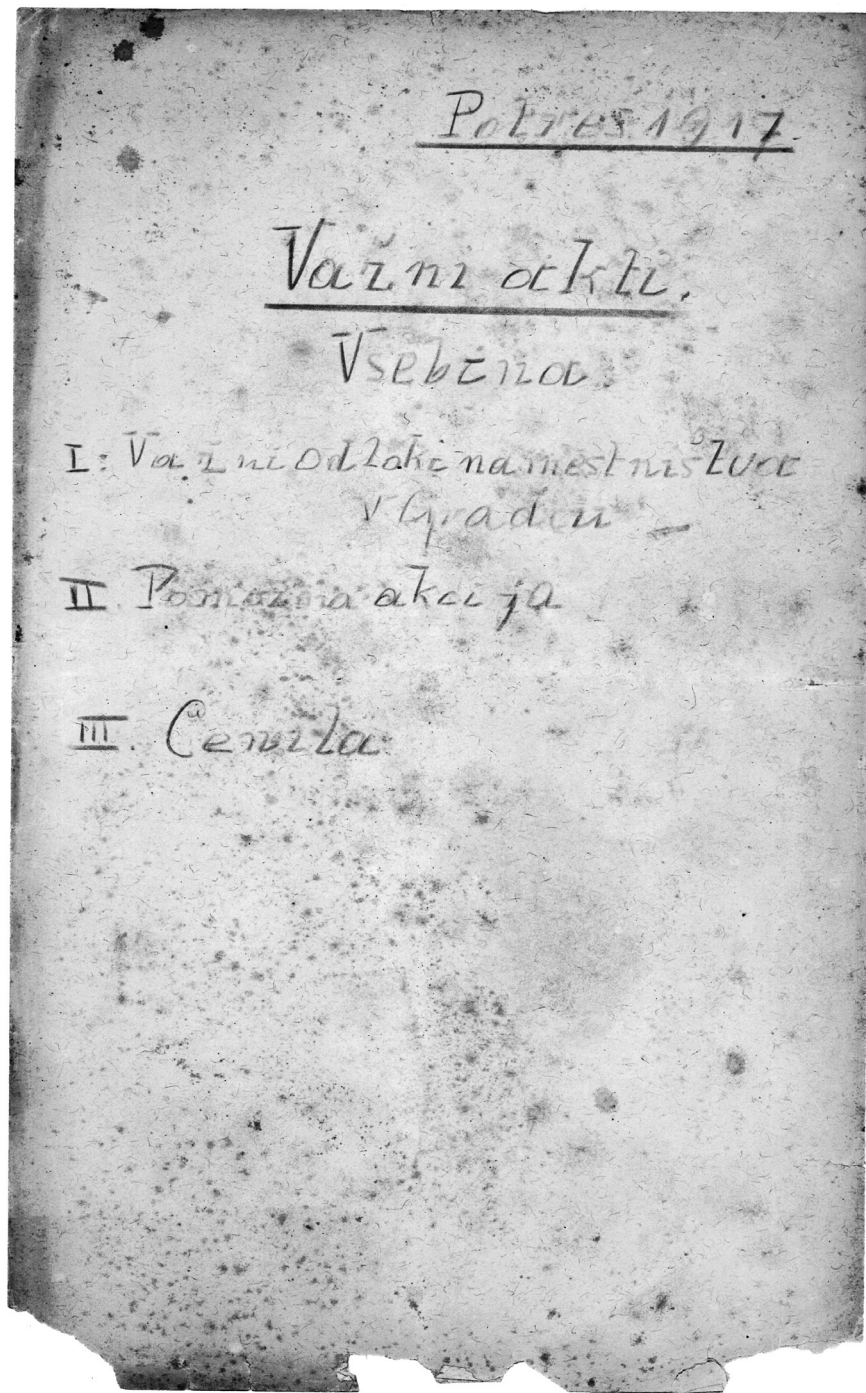 Potres 1917.
Važni akti.
Vsebina.
I: Važni odloki namestništva
v Gradcu –
II. Pomožna akcija
III. Cenila